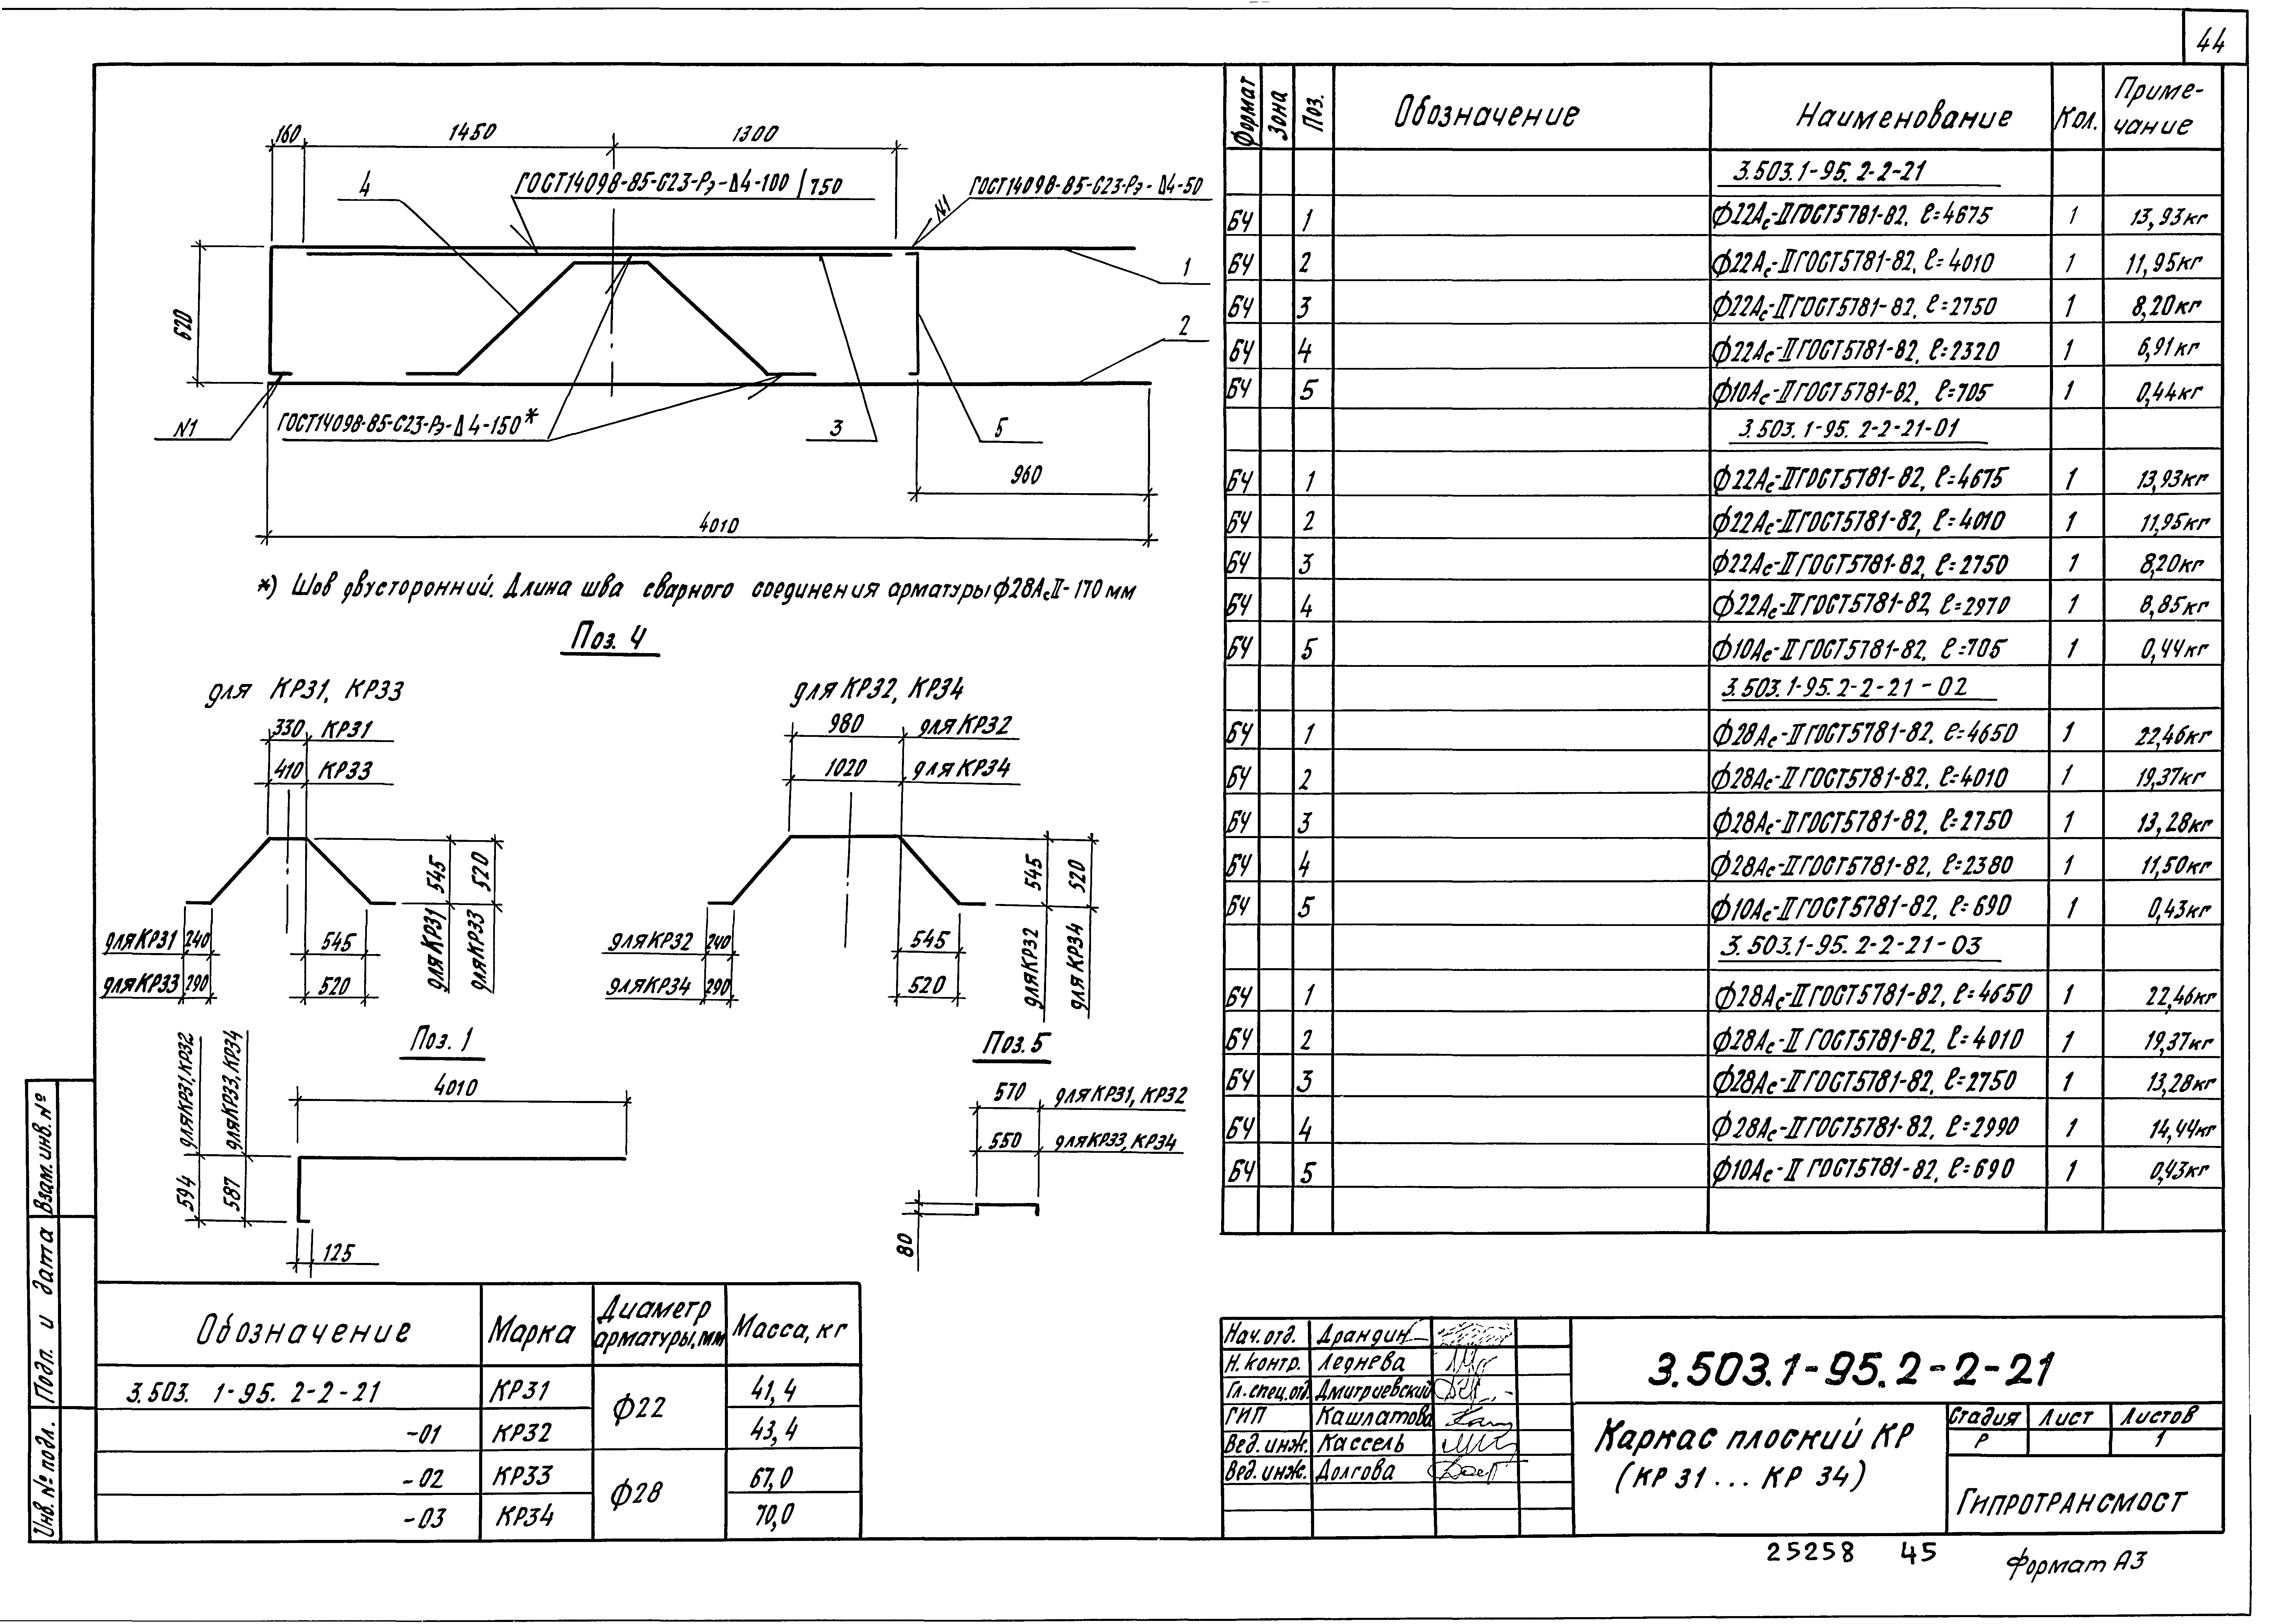 44
160
1450
1300
4
ГОСТ14098-85-С23-Рэ-Δ4-100/750
N1
ГОСТ14098-85-С23-Рэ-Δ4-50
620
1
2
N1
ГОСТ14098-85-С23-Рэ-Δ4-150*
3
5
960
4010
*) Шов двусторонний. Длина шва сварного соединения арматуры ф28АсII-170мм
Поз. 4
для КР31, КР33
330 КР31
410 КР33
545
520
для КР31
для КР33
для КР31 240
545
для КР33 290
520
для КР32, КР34
980 для КР32
1020 для КР34
545
520
для КР32
для КР34
для КР32 240
545
для КР34 290
520
Поз. 1
4010
для КР31, КР32
для КР33, КР34
594
587
125
Поз. 5
570 для КР31, КР32
550 для КР33, КР34
80
Обозначение Марка Диаметр арматуры, мм Масса, кг
3.503. 1-95. 2-2-21 КР31 ф22 41,4
-01 КР32 43,4
-02 КР33 ф28 67,0
-03 КР34 70,0
Формат Зона Поз. Обозначение Наименование Кол. Приме-
чание
3.503.1-95. 2-2-21
БЧ 1 ф22Ас-II ГОСТ5781-82, ℓ=4675 1 13,93кг
БЧ 2 ф22Ас-II ГОСТ5781-82, ℓ=4010 1 11,95кг
БЧ 3 ф22Ас-II ГОСТ5781-82, ℓ=2750 1 8,20кг
БЧ 4 ф22Ас-II ГОСТ5781-82, ℓ=2320 1 6,91кг
БЧ 5 ф10Ас-II ГОСТ5781-82, ℓ=705 1 0,44кг
3.503.1-95. 2-2-21-01
БЧ 1 ф22Ас-II ГОСТ5781-82, ℓ=4675 1 13,93кг
БЧ 2 ф22Ас-II ГОСТ5781-82, ℓ=4010 1 11,95кг
БЧ 3 ф22Ас-II ГОСТ5781-82, ℓ=2750 1 8,20кг
БЧ 4 ф22Ас-II ГОСТ5781-82, ℓ=2970 1 8,85кг
БЧ 5 ф10Ас-II ГОСТ5781-82, ℓ=705 1 0,44кг
3.503.1-95.2-2-21-02
БЧ 1 ф28Ас-II ГОСТ5781-82, ℓ=4650 1 22,46кг
БЧ 2 ф28Ас-II ГОСТ5781-82, ℓ=4010 1 19,37кг
БЧ 3 ф28Ас-II ГОСТ5781-82, ℓ=2750 1 13,28кг
БЧ 4 ф28Ас-II ГОСТ5781-82, ℓ=2380 1 11,50кг
БЧ 5 ф10Ас-II ГОСТ5781-82, ℓ=690 1 0,43кг
3.503.1-95. 2-2-21-03
БЧ 1 ф28Ас-II ГОСТ5781-82, ℓ=4650 1 22,46кг
БЧ 2 ф28Ас-II ГОСТ5781-82, ℓ=4010 1 19,37кг
БЧ 3 ф28Ас-II ГОСТ5781-82, ℓ=2750 1 13,28кг
БЧ 4 ф28Ас-II ГОСТ5781-82, ℓ=2990 1 14,44кг
БЧ 5 ф10Ас-II ГОСТ5781-82, ℓ=690 1 0,43кг
Нач.отд. Драндин
Н.контр. Леднева
Гл.спец.отд. Дмитриевский
ГИП Кашлатова
Вед.инж. Кассель
Вед.инж. Долгова
3.503.1-95.2-2-21
Каркас плоский КР
(КР 31 ... КР 34)
Стадия Лист Листов
Р 1
Гипротрансмост
25258 45
Формат А3
Инв. № подл. Подп. и дата Взам.инв.№